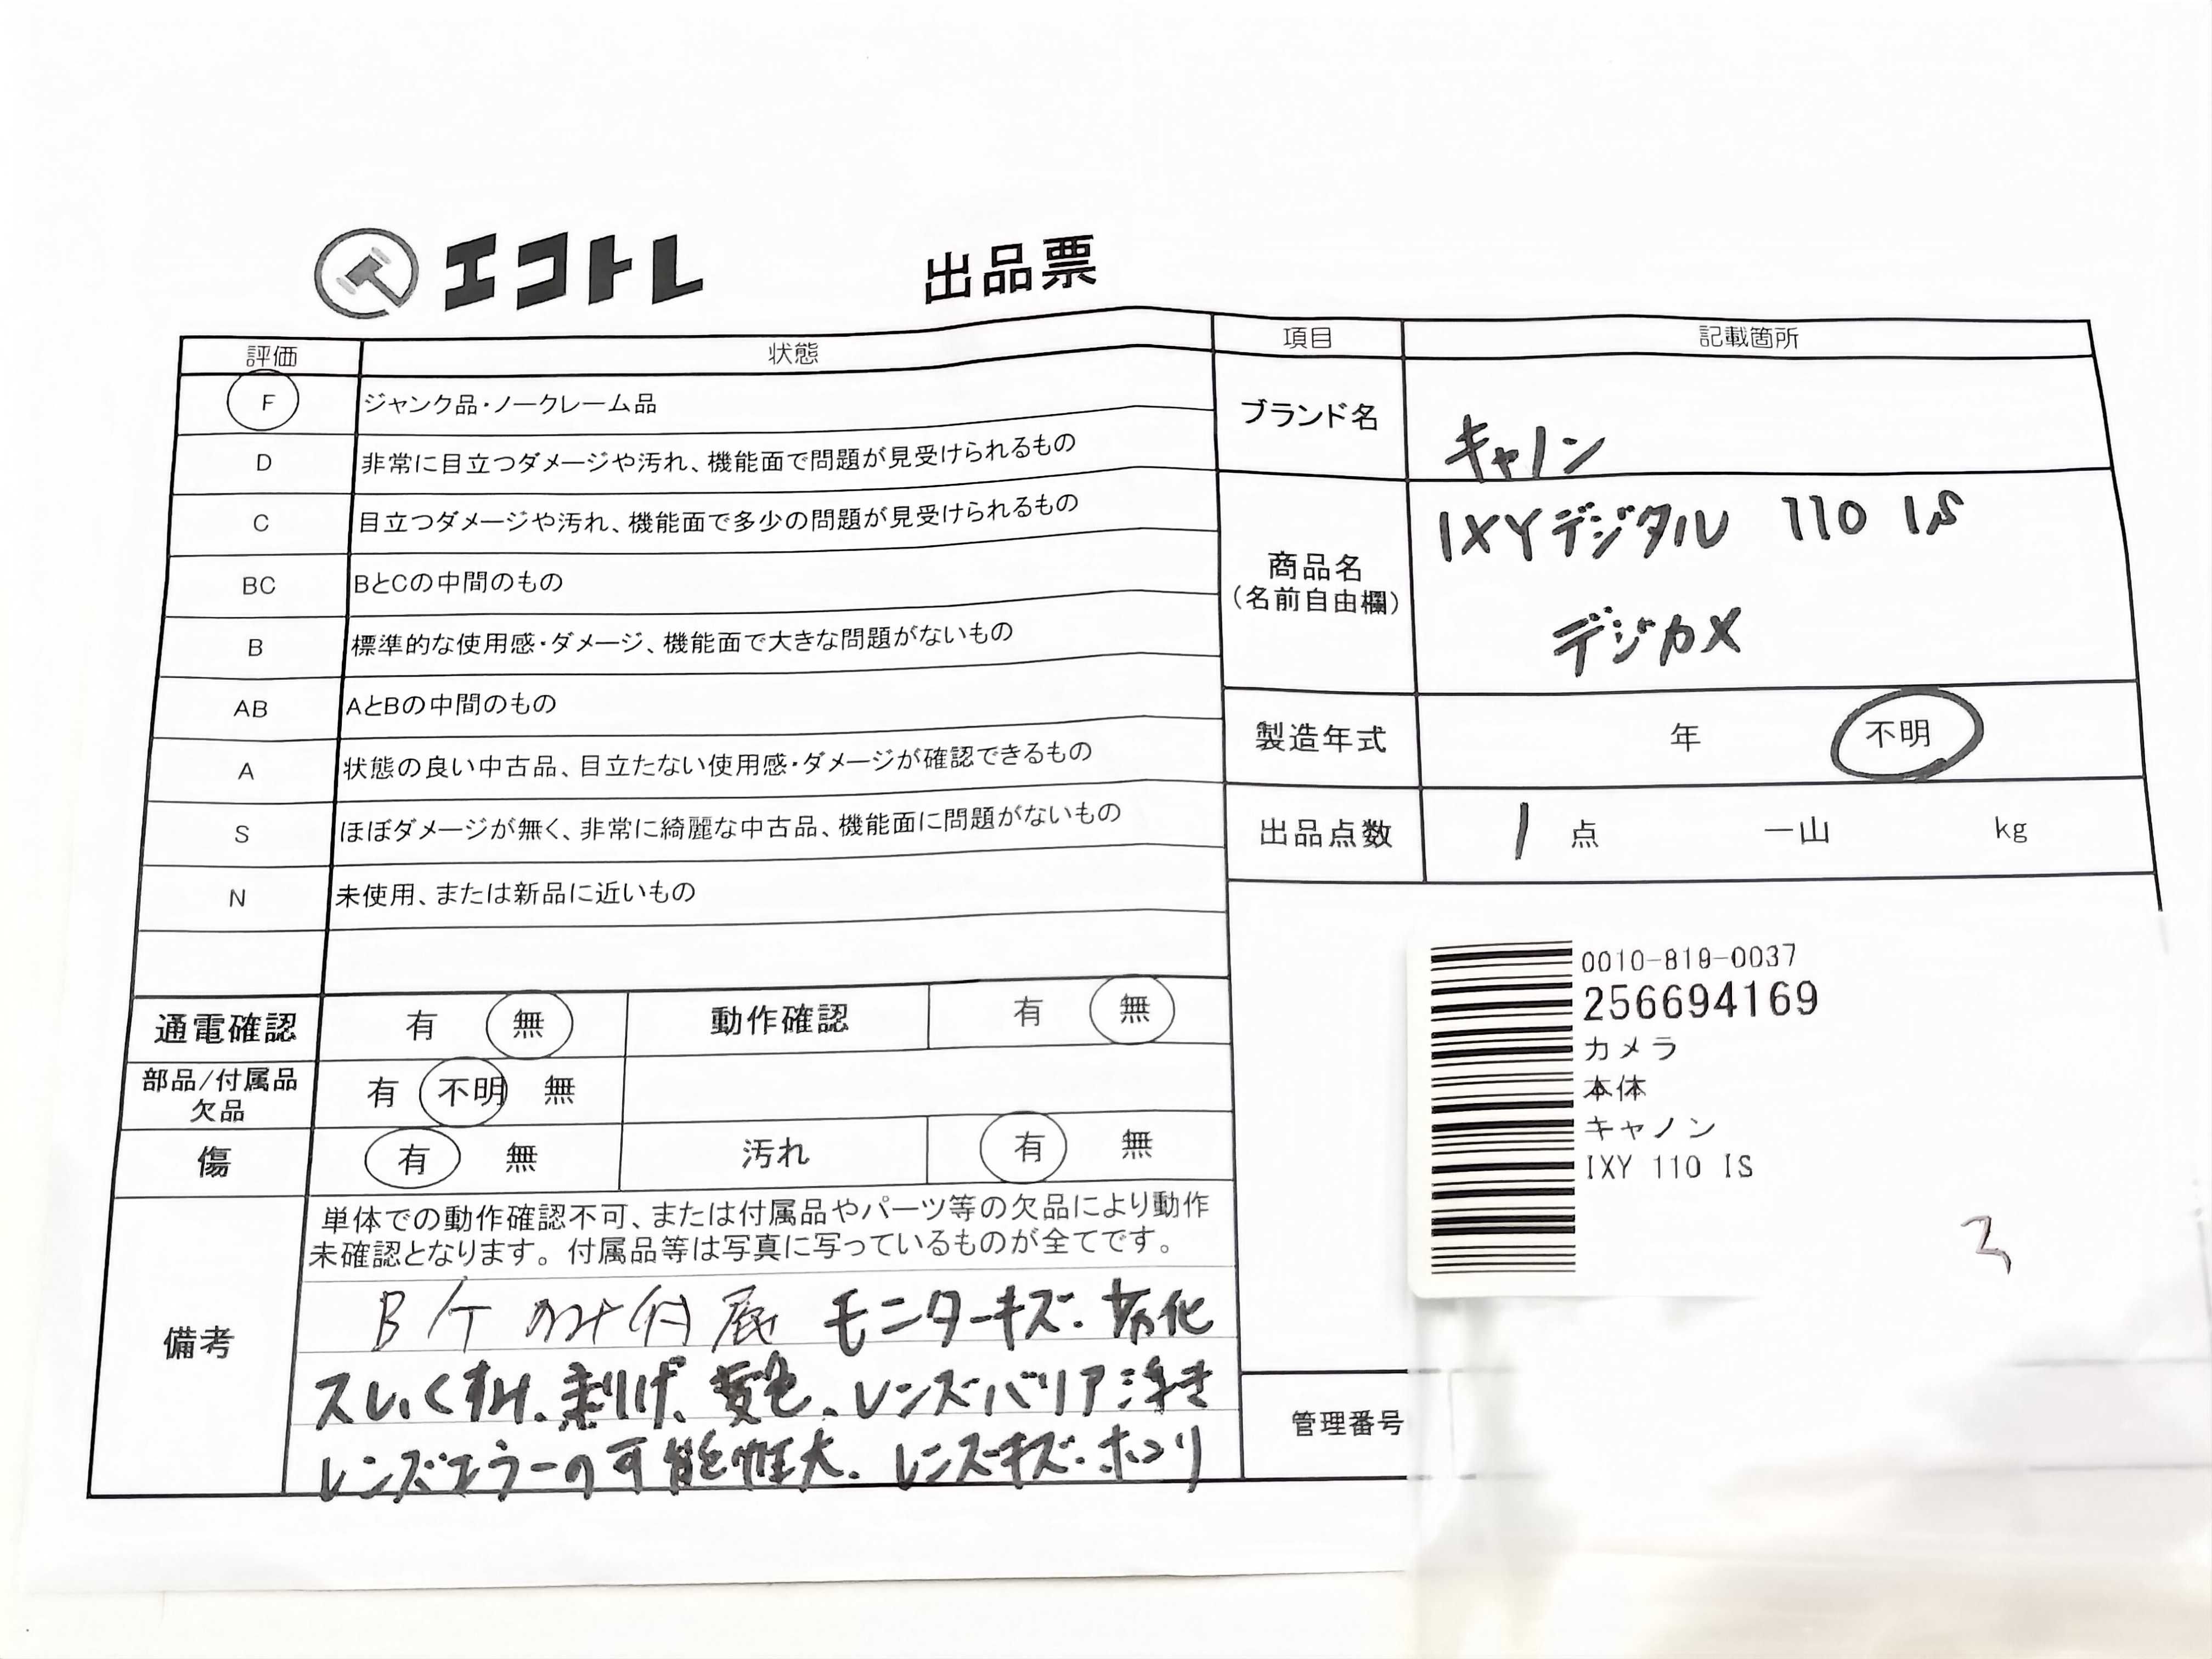 エコトレ 出品票
評価 状態
F ジャンク品・ノークレーム品
D 非常に目立つダメージや汚れ、機能面で問題が見受けられるもの
C 目立つダメージや汚れ、機能面で多少の問題が見受けられるもの
BC BとCの中間のもの
B 標準的な使用感・ダメージ、機能面で大きな問題がないもの
AB AとBの中間のもの
A 状態の良い中古品、目立たない使用感・ダメージが確認できるもの
S ほぼダメージが無く、非常に綺麗な中古品、機能面に問題がないもの
N 未使用、または新品に近いもの
通電確認 有 無 動作確認 有 無
部品/付属品
欠品 有 不明 無
傷 有 無 汚れ 有 無
備考
単体での動作確認不可、または付属品やパーツ等の欠品により動作
未確認となります。付属品等は写真に写っているものが全てです。
B/T のみ付属 モニターキズ・劣化
スレ、くすみ、剥げ、変色、レンズバリア浮き
レンズエラーの可能性大、レンズキズ・ホコリ
項目 記載箇所
ブランド名 キャノン
商品名
(名前自由欄)
IXYデジタル 110 IS
デジカメ
製造年式 年 不明
出品点数 1 点 一山 kg
0010-819-0037
256694169
カメラ
本体
キャノン
IXY 110 IS
管理番号